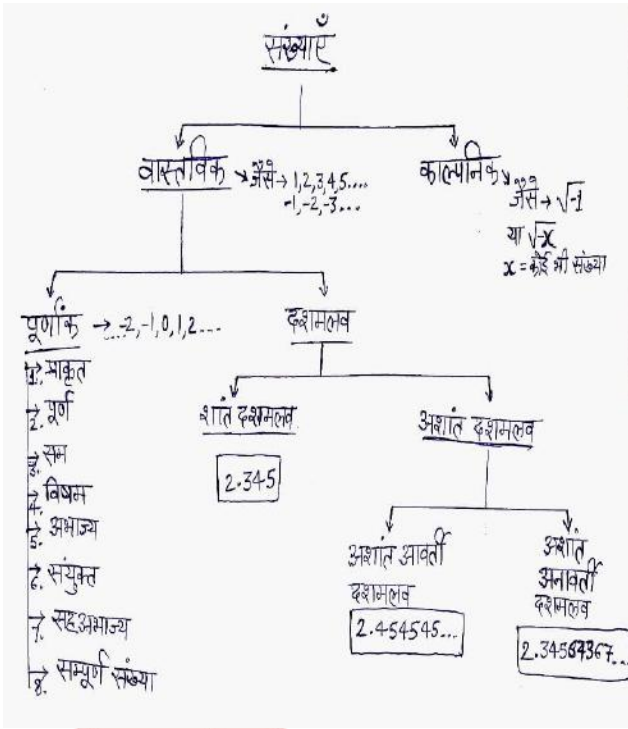 संख्याएँ
वास्तविक
जैसे → 1,2,3,4,5....
-1,-2,-3...
काल्पनिक
जैसे → √-1
या √-x
x = कोई भी संख्या
पूर्णांक → ...-2,-1,0,1,2....
दशमलव
1. प्राकृत
2. पूर्ण
3. सम
4. विषम
5. अभाज्य
6. संयुक्त
7. सहअभाज्य
8. सम्पूर्ण संख्या
शांत दशमलव
2.345
अशांत दशमलव
अशांत आवर्ती
दशमलव
2.454545...
अशांत
अनावर्ती
दशमलव